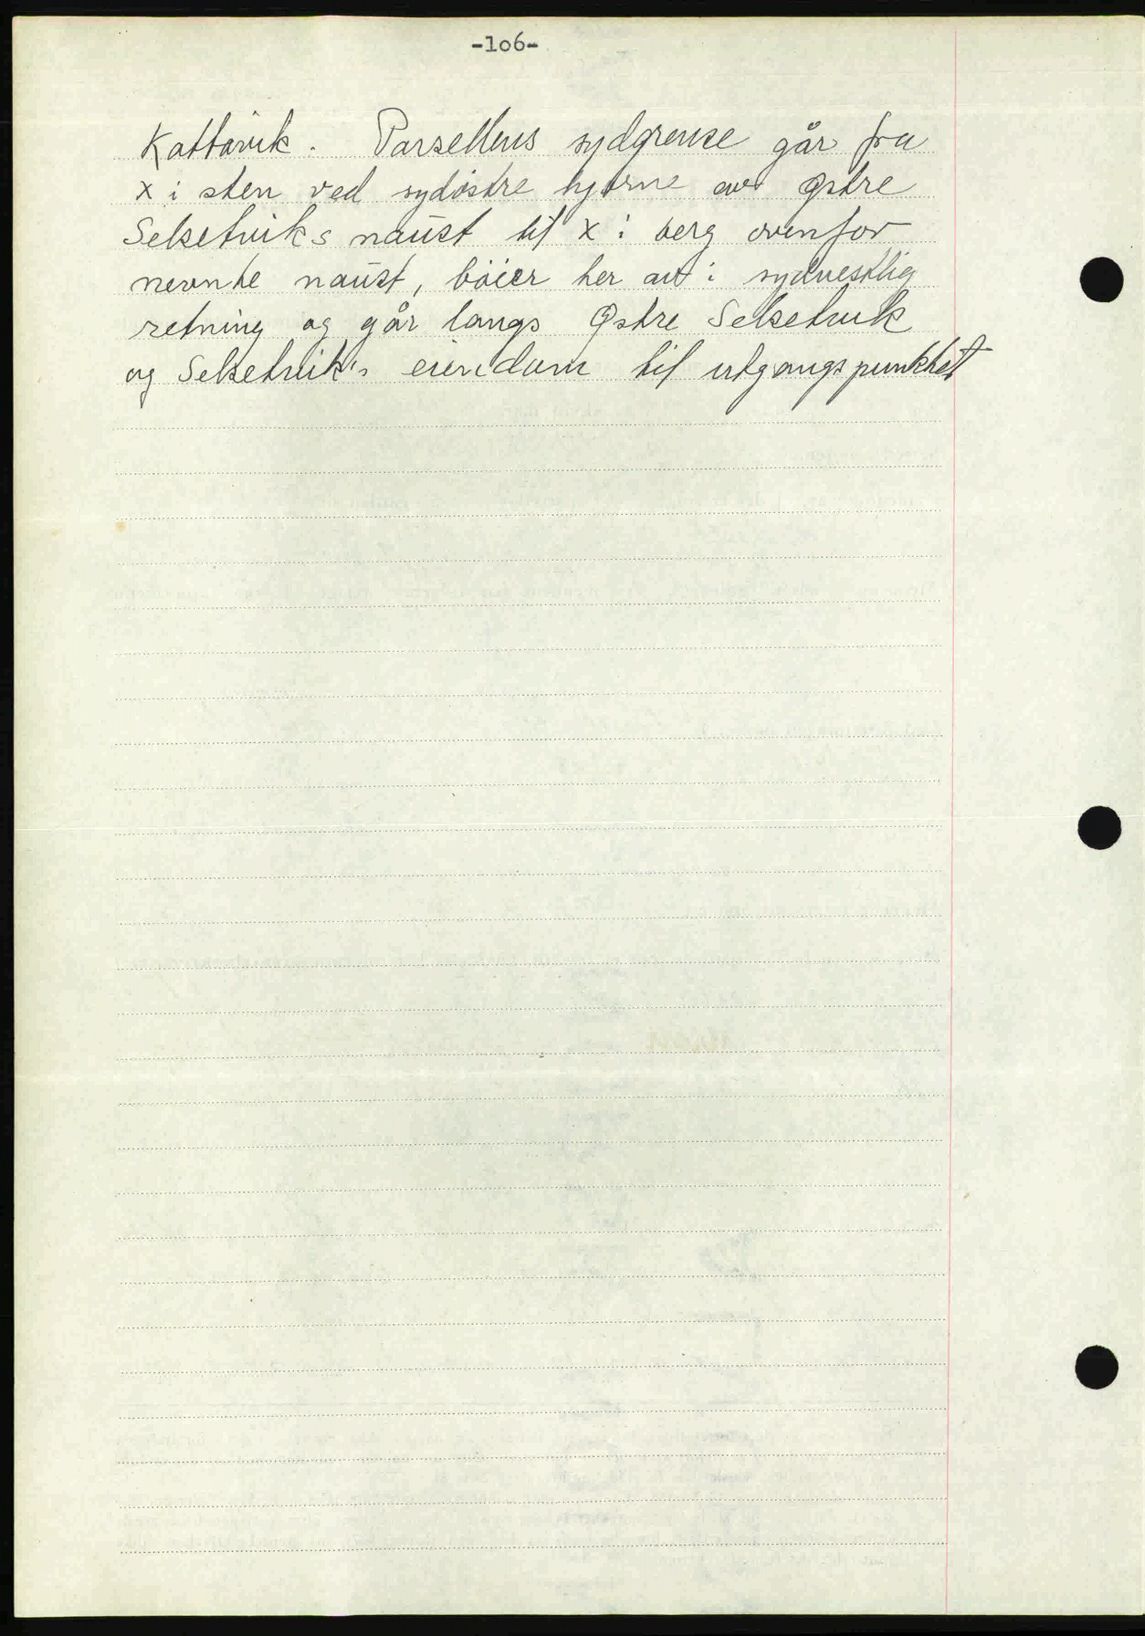 -106-
Kattavik. Parsellens sydgrense går fra
x i sten ved sydöstre hjörne av Østre
Selsetviks naust til x i berg ovenfor
nevnte naust, böier her av i sydvestlig
retning og går langs Østre Selsetvik
og Selsetvik's eiendom til utgangspunktet